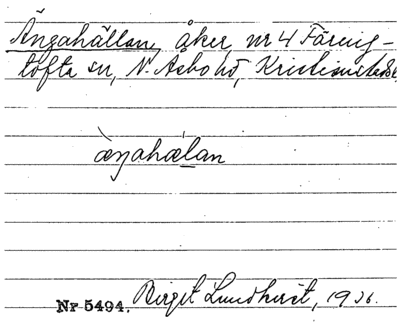 Ängahällan, åker, nr 4 Färing-
tofta sn, N. Åsbo hd, Kristianstads l.
æŋahælan
Nr 5494. Birgit Lundkvist, 1936.